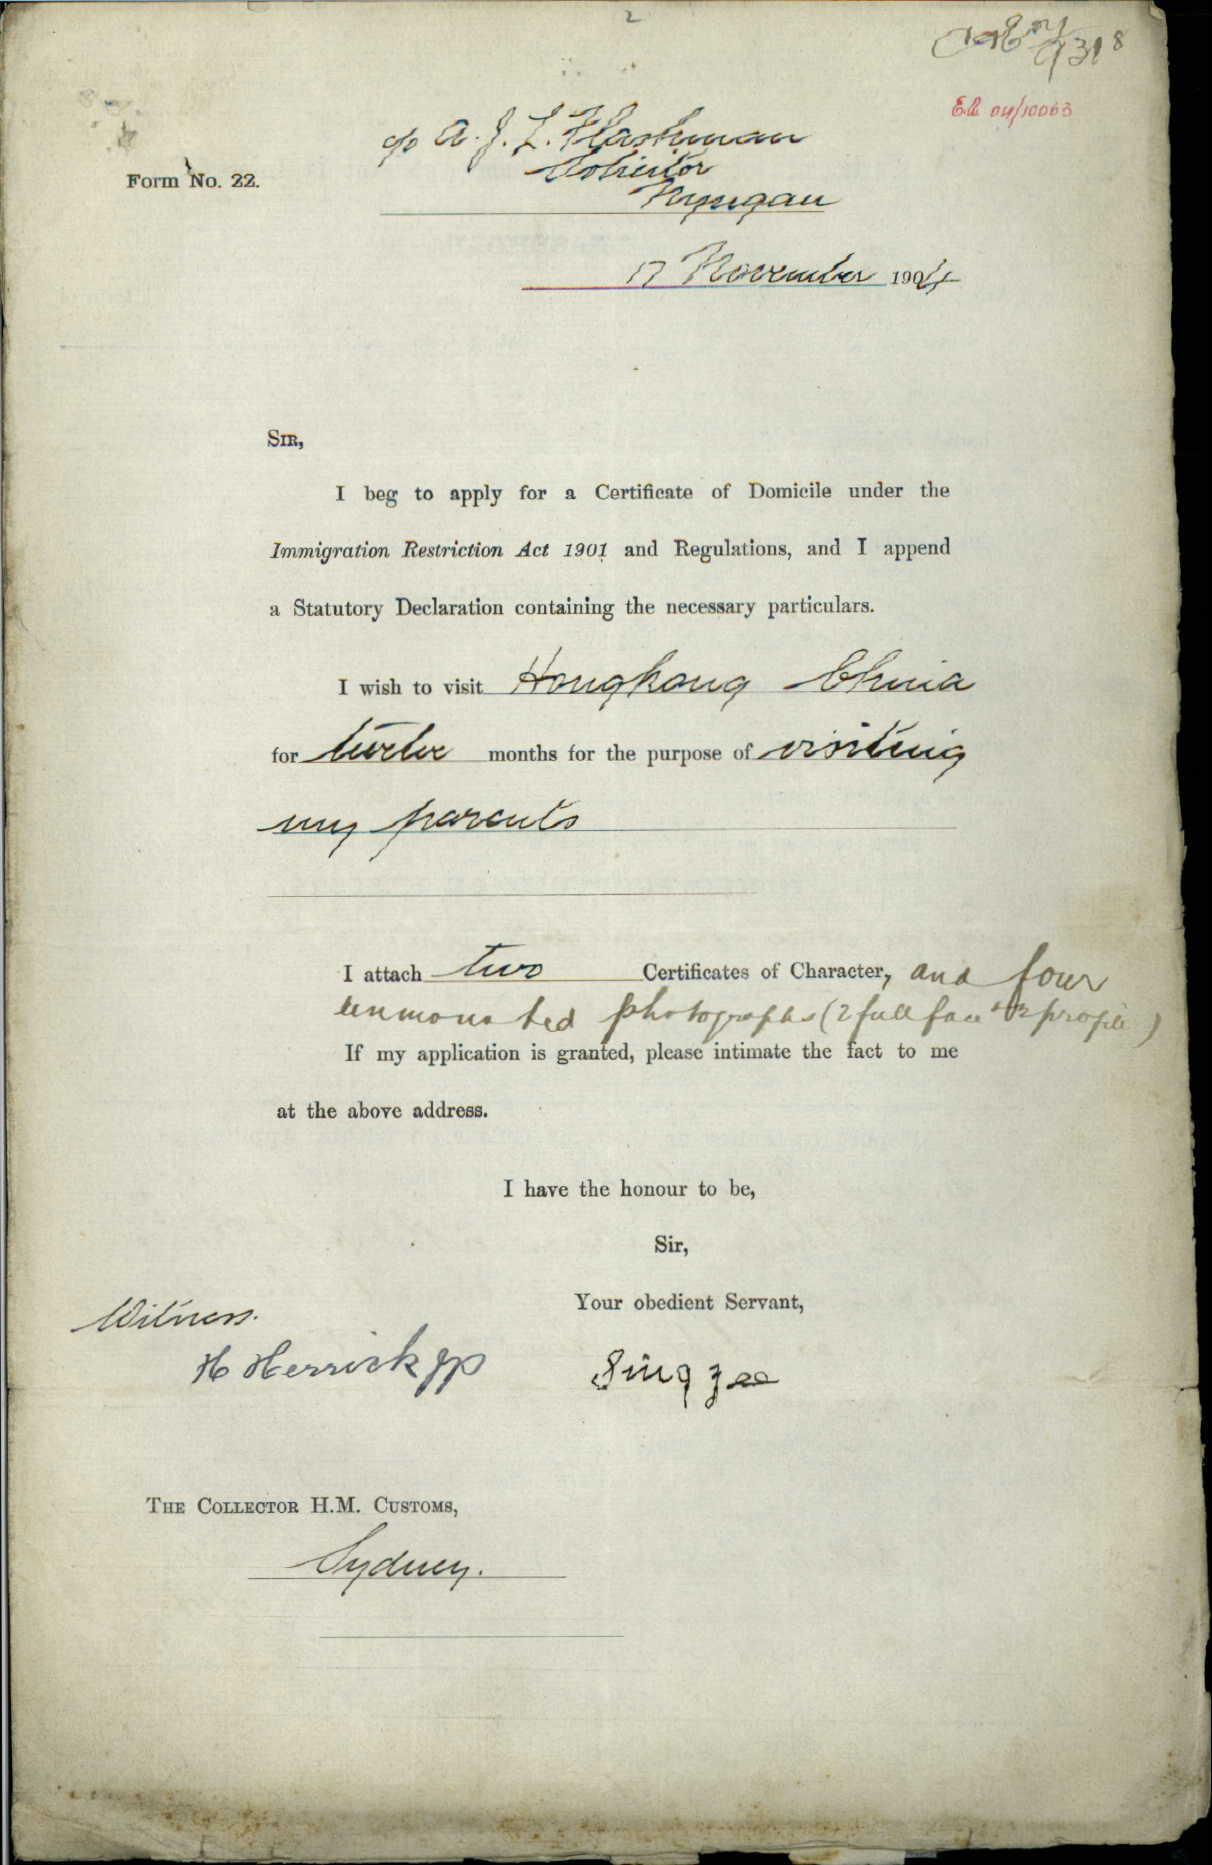 2
8
E.R. 04/10063
c/o A. J. L. Flashman
Solicitor
Form No. 22.
Nyngan
17 November 1904
SIR,
I beg to apply for a Certificate of Domicile under the
Immigration Restriction Act 1901 and Regulations, and I append
a Statutory Declaration containing the necessary particulars.
I wish to visit Hongkong China
for twelve months for the purpose of visiting
my parents
I attach two Certificates of Character, and four
unmounted photographs (2 full face & 2 profile)
If my application is granted, please intimate the fact to me
at the above address.
I have the honour to be,
Sir,
Your obedient Servant,
Witness.
H Herrick JP
Sing Zee
THE COLLECTOR H.M. CUSTOMS,
Sydney.